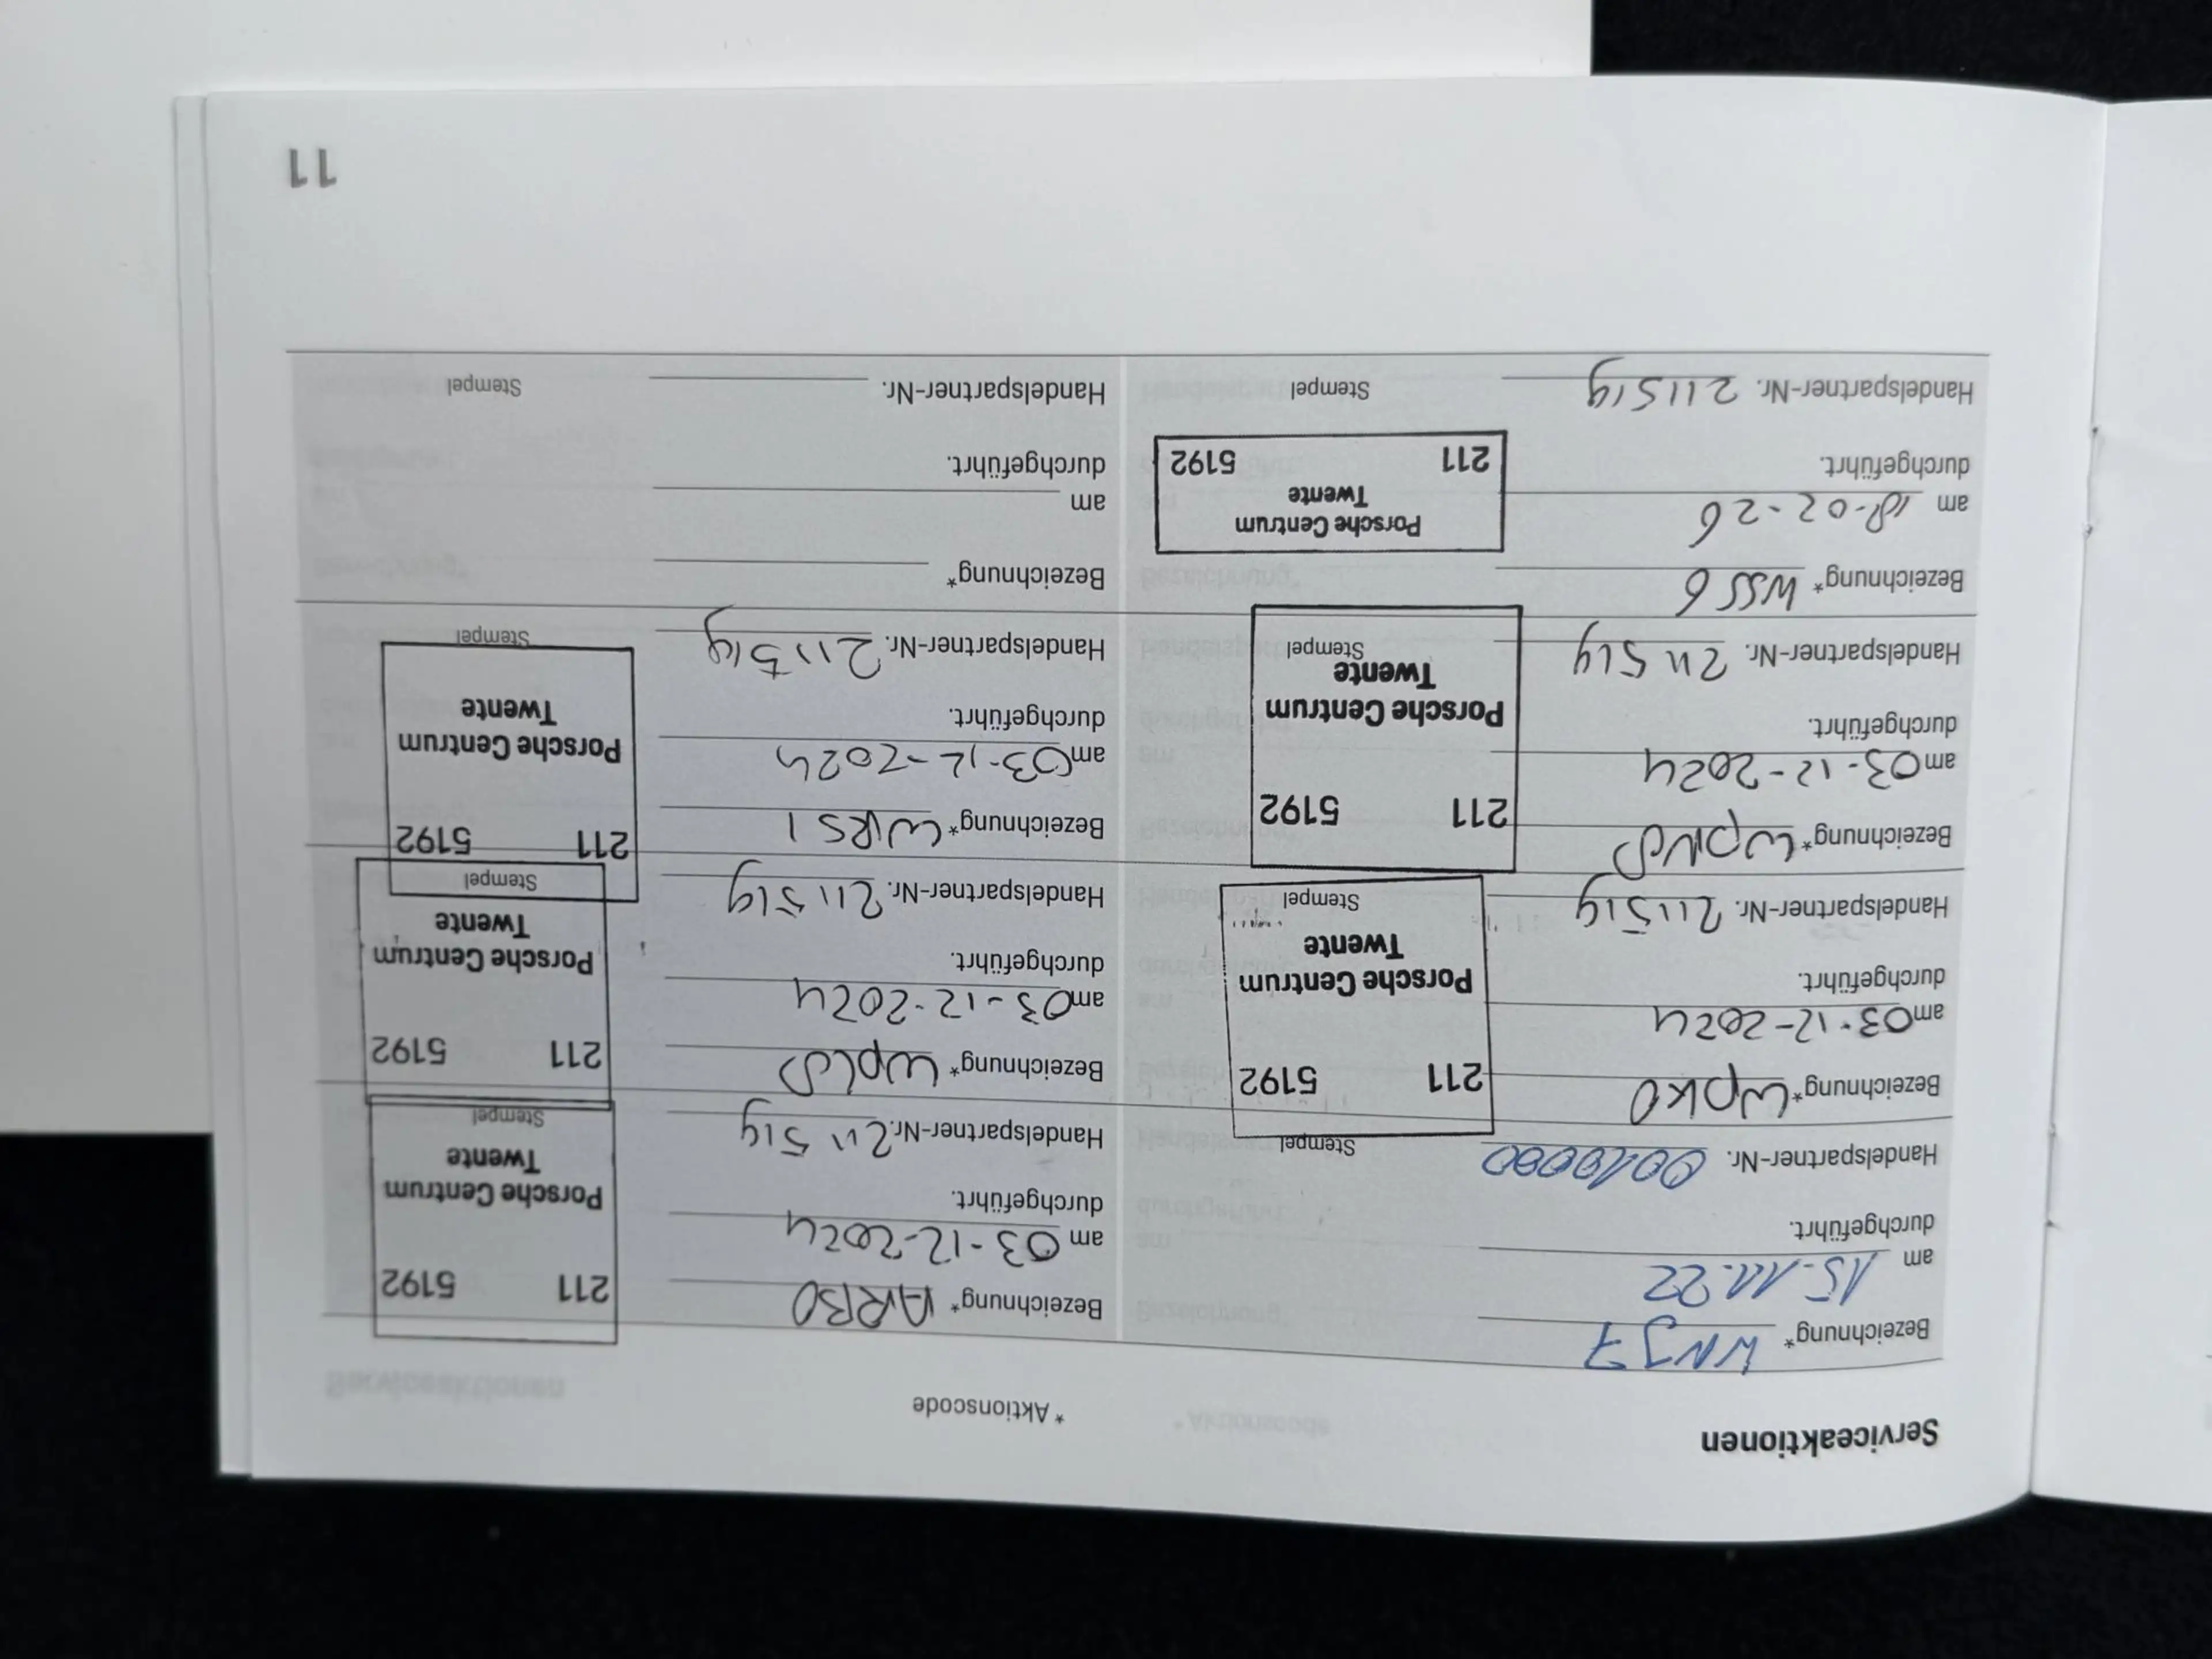 Serviceaktionen
* Aktionscode
Bezeichnung* WNJ7
am 15.11.22
durchgeführt.
Handelspartner-Nr. 0010000
Stempel
Bezeichnung* WPK0
am 03-12-2024
durchgeführt.
Handelspartner-Nr. 211519
Stempel
211 5192
Porsche Centrum
Twente
Bezeichnung* WPN0
am 03-12-2024
durchgeführt.
Handelspartner-Nr. 211519
Stempel
211 5192
Porsche Centrum
Twente
Bezeichnung* WSS6
am 18-02-26
durchgeführt.
Handelspartner-Nr. 211519
Stempel
Porsche Centrum
Twente
211 5192
Bezeichnung* ARB0
am 03-12-2024
durchgeführt.
Handelspartner-Nr. 211519
Stempel
211 5192
Porsche Centrum
Twente
Bezeichnung* WPL0
am 03-12-2024
durchgeführt.
Handelspartner-Nr. 211519
Stempel
211 5192
Porsche Centrum
Twente
Bezeichnung* WRS1
am 03-12-2024
durchgeführt.
Handelspartner-Nr. 211519
Stempel
211 5192
Porsche Centrum
Twente
Bezeichnung*
am
durchgeführt.
Handelspartner-Nr.
Stempel
11